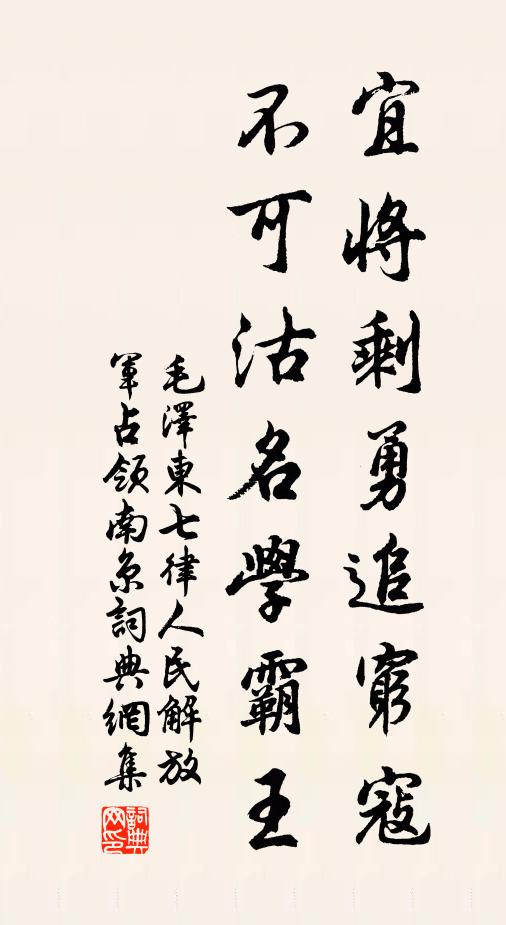 宜將剩勇追窮寇
不可沽名學霸王
毛澤東七律人民解放
軍占領南京詞典網集
詞典网印